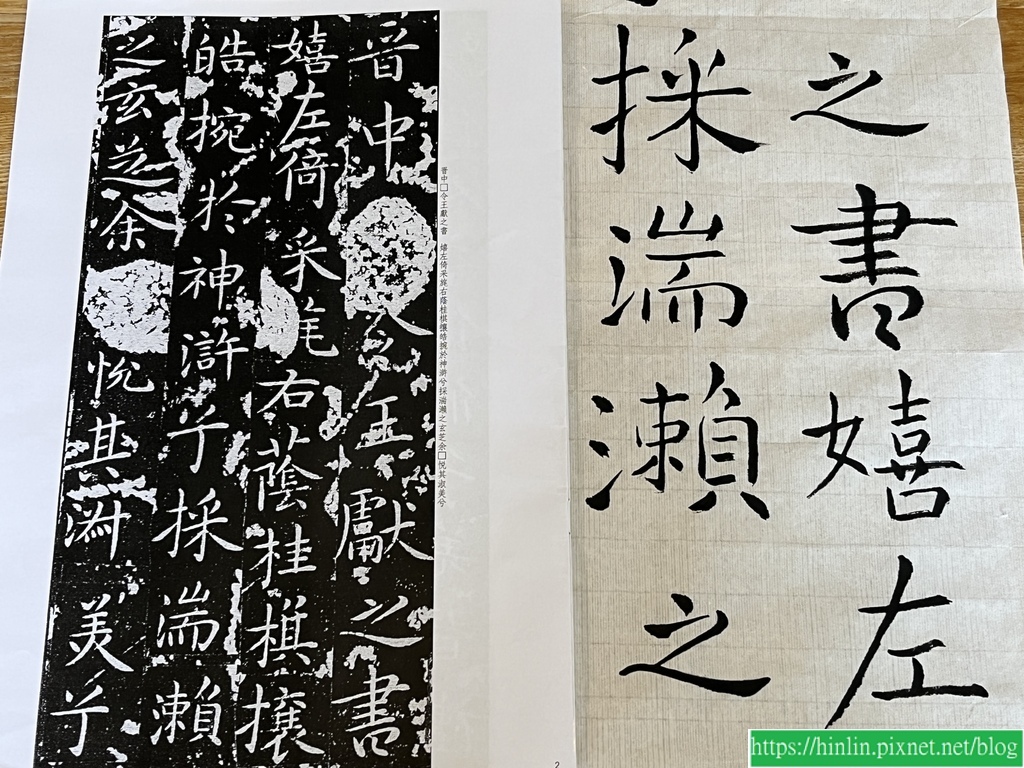 晉中令王獻之書
嬉左倚采旄右蔭桂棋攘
皓捥於神滸兮採湍瀨
之玄芝余悅其淑美兮
晉中□令王獻之書　嬉左倚采旄右蔭桂棋攘皓捥於神滸兮採湍瀨之玄芝余□悅其淑美兮
2
之書嬉左
採湍瀨之
https://hinlin.pixnet.net/blog